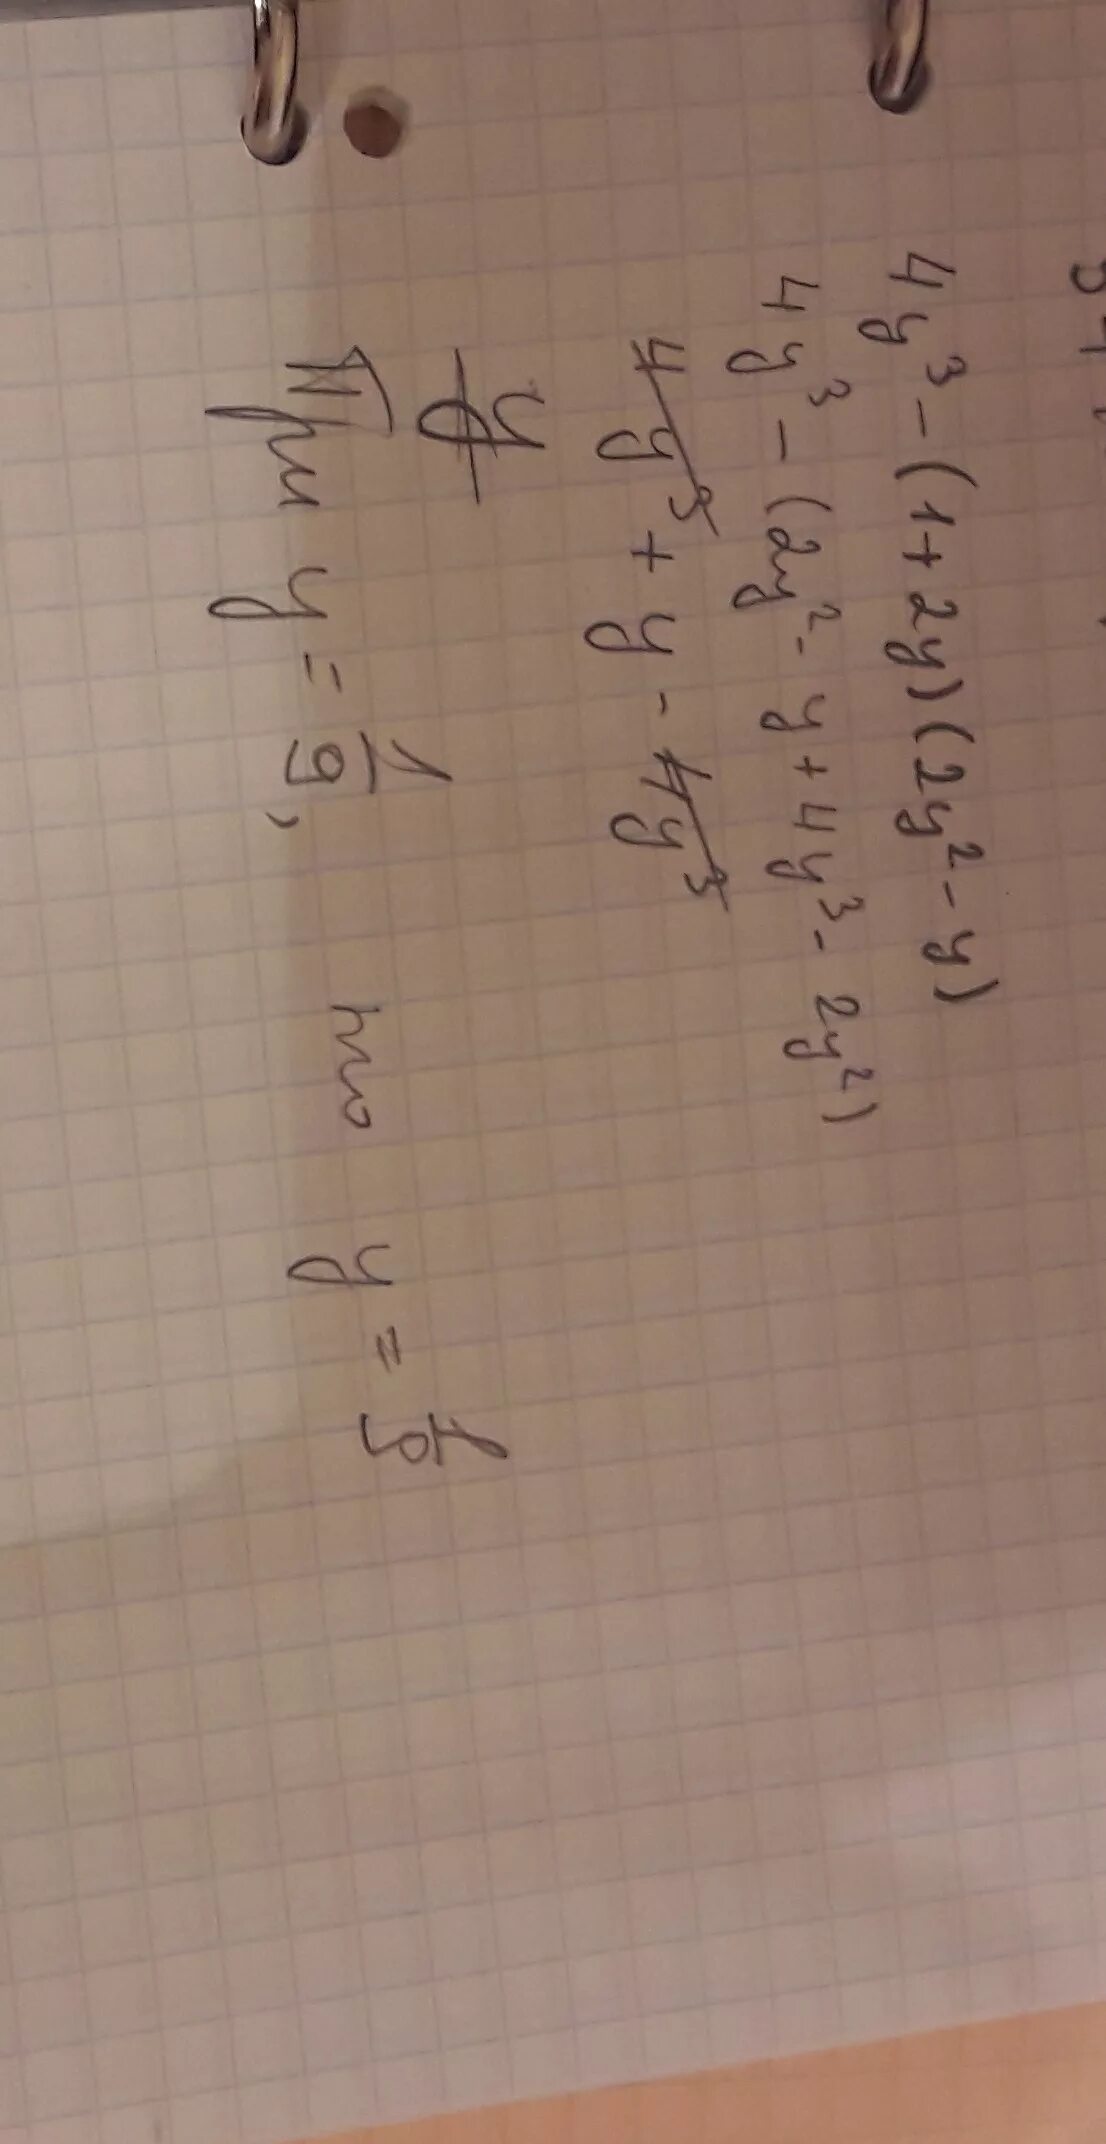 4y³ - (1+2y)(2y² - y)
4y³ - (2y² - y + 4y³ - 2y²)
4y³ + y - 4y³
y
При y = 1/9, то y = 1/9